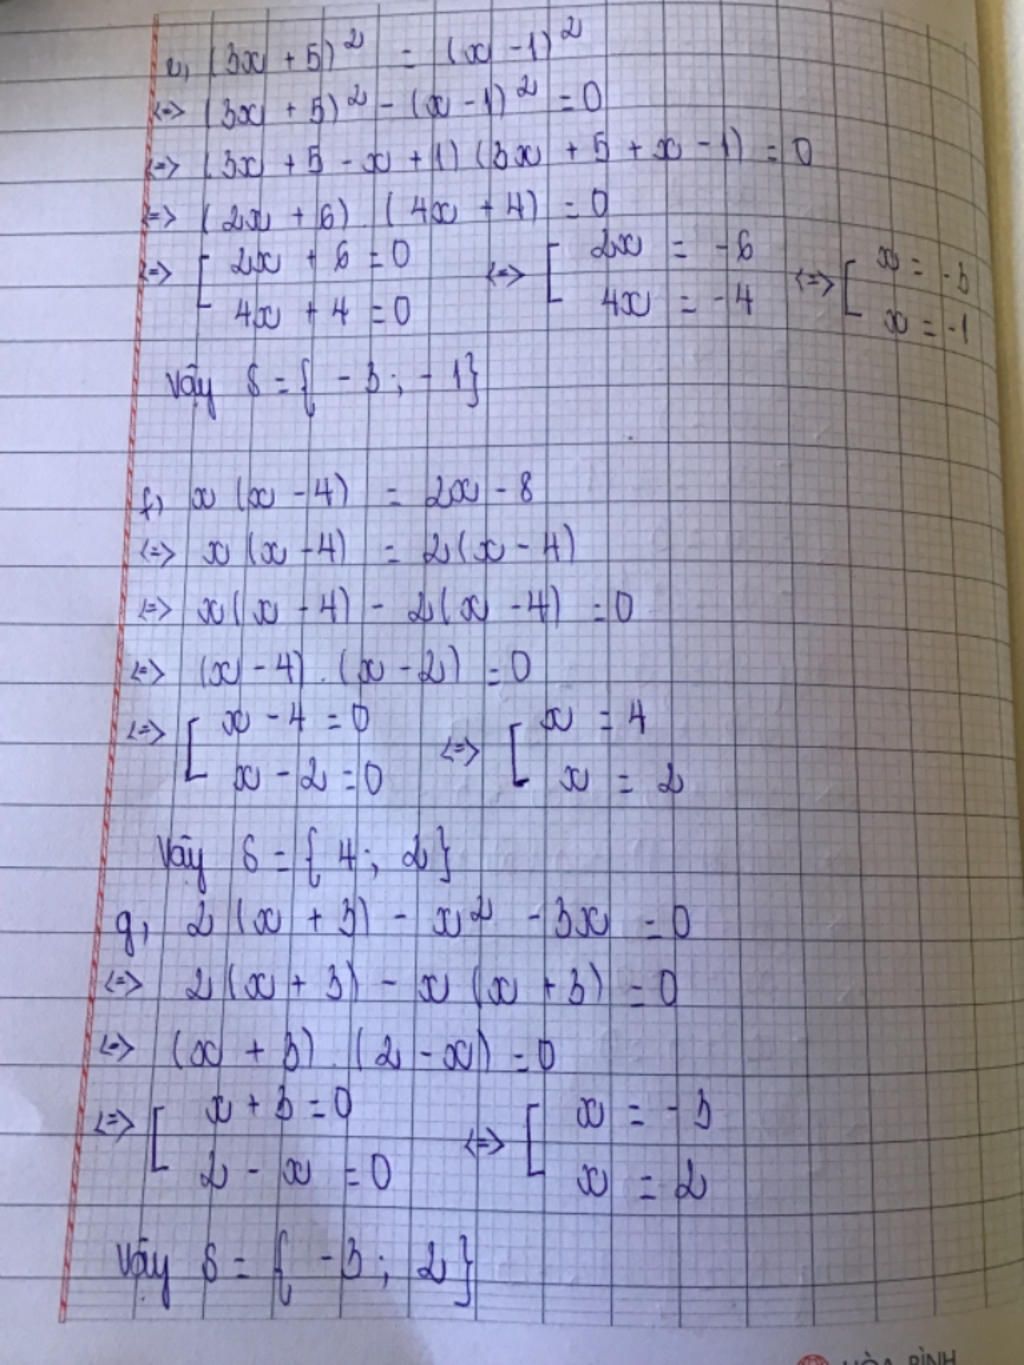 e, (3x + 5)² = (x - 1)²
<=> (3x + 5)² - (x - 1)² = 0
<=> (3x + 5 - x + 1) (3x + 5 + x - 1) = 0
<=> (2x + 6) . (4x + 4) = 0
<=> [ 2x + 6 = 0 <=> [ 2x = -6 <=> [ x = -3
4x + 4 = 0 4x = -4 x = -1
Vậy S = { -3 ; -1}
f, x (x - 4) = 2x - 8
<=> x (x - 4) = 2 (x - 4)
<=> x (x - 4) - 2 (x - 4) = 0
<=> (x - 4) . (x - 2) = 0
<=> [ x - 4 = 0 <=> [ x = 4
x - 2 = 0 x = 2
Vậy S = { 4 ; 2}
g, 2 (x + 3) - x² - 3x = 0
<=> 2 (x + 3) - x (x + 3) = 0
<=> (x + 3) . (2 - x) = 0
<=> [ x + 3 = 0 <=> [ x = -3
2 - x = 0 x = 2
Vậy S = { -3 ; 2}
HÒA BÌNH